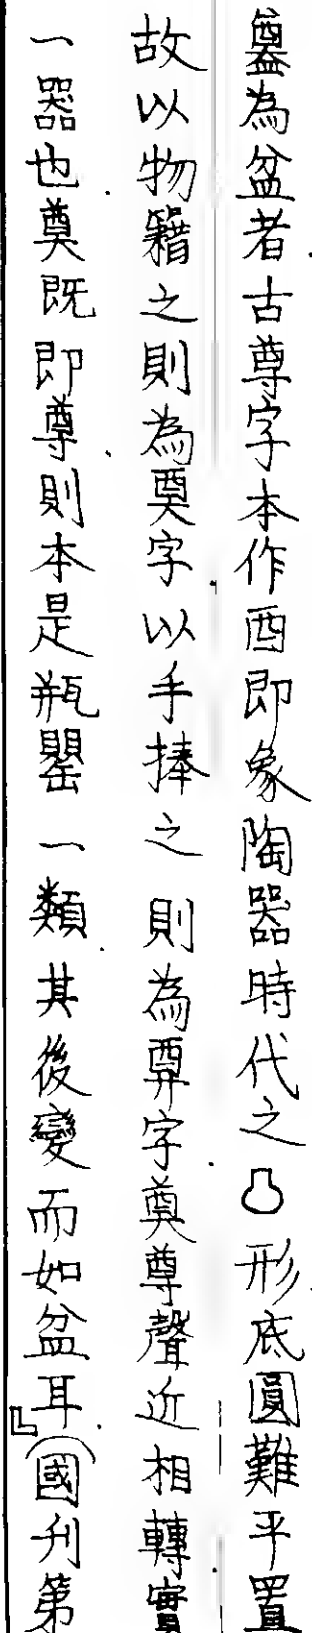 為盆者古尊字本作酉即象陶器時代之形底圓難平置
故以物籍之則為奠字以手捧之則為尊字奠尊聲近相轉實
一器也奠既即尊則本是瓶罌一類其後變而如盆耳』(國刋第